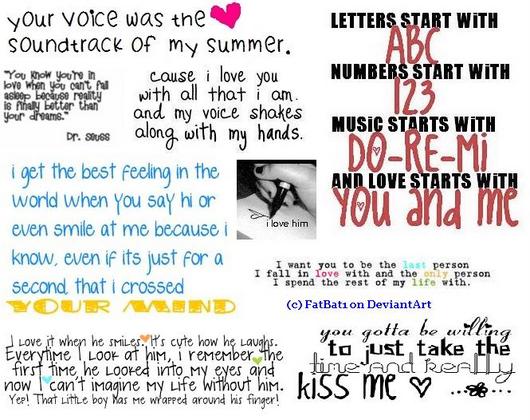 your voice was the
soundtrack of my summer.
"You know you're in
love when you can't fall
asleep because reality
is finally better than
your dreams."
Dr. Seuss
cause i love you
with all that i am.
and my voice shakes
along with my hands.
LETTERS START WiTH
ABC
NUMBERS START WiTH
123
MUSiC STARTS WiTH
DO-RE-Mi
AND LOVE STARTS WiTH
You and me
i get the best feeling in the
world when you say hi or
even smile at me because i
know, even if its just for a
second, that i crossed
YOUR MIND
i love him
I want you to be the last person
I fall in love with and the only person
I spend the rest of my life with.
(c) FatBat1 on DeviantArt
I love it when he smiles. It's cute how he laughs.
Everytime I look at him, I remember the
first time he looked into my eyes and
now I can't imagine my life without him.
Yep! That little boy has me wrapped around his finger!
you gotta be willing
to just take the
time and really
kiss me